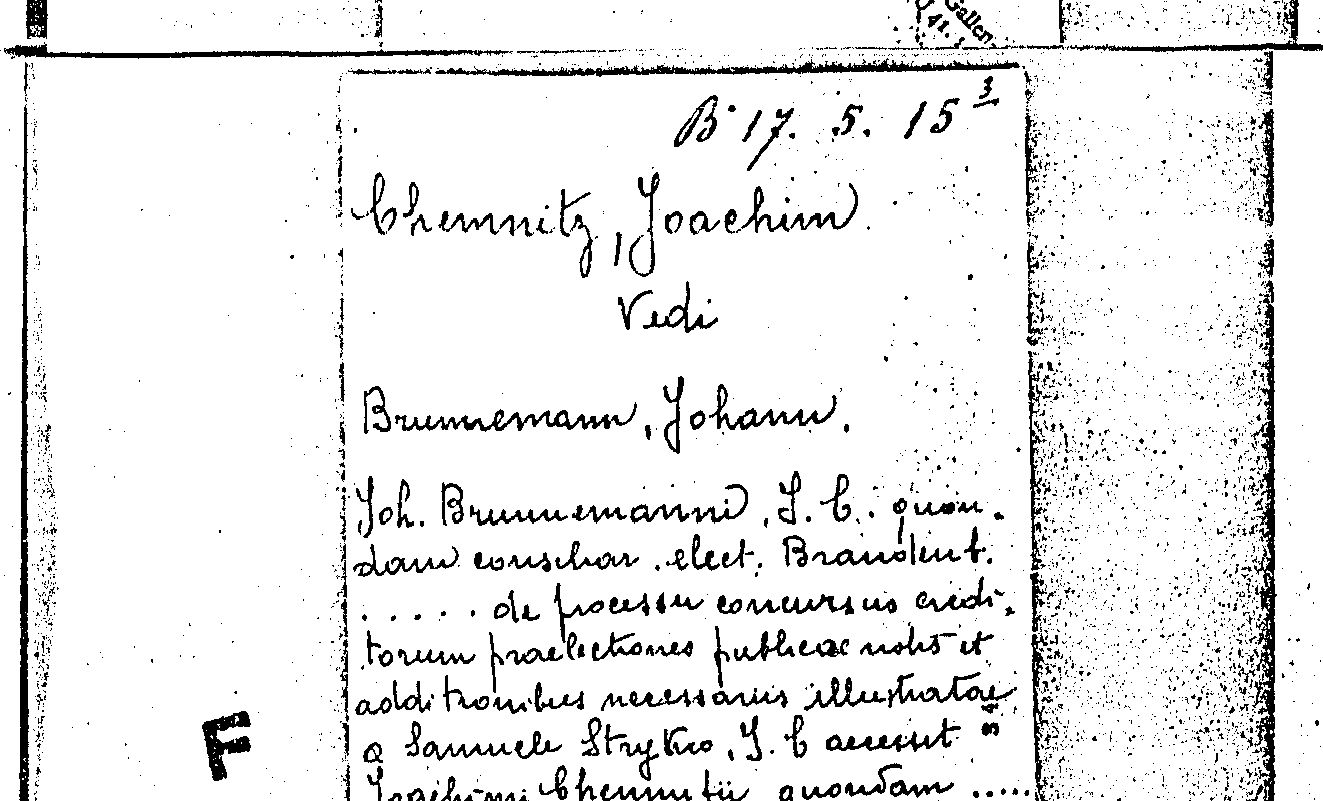 Gallen
B 17. 5. 15 3
Chemnitz, Joachim
Vedi
Brunnemann, Johann.
Joh. Brunnemanni, J. C. quon-
dam consiliar. elect. Brandent.
..... de processu concursus credi-
torum praelectiones publicae notis et
additionibus necessariis illustratae
a Samuele Strykio, J. C accessit
Joachimi Chemnitii quondam .....
F